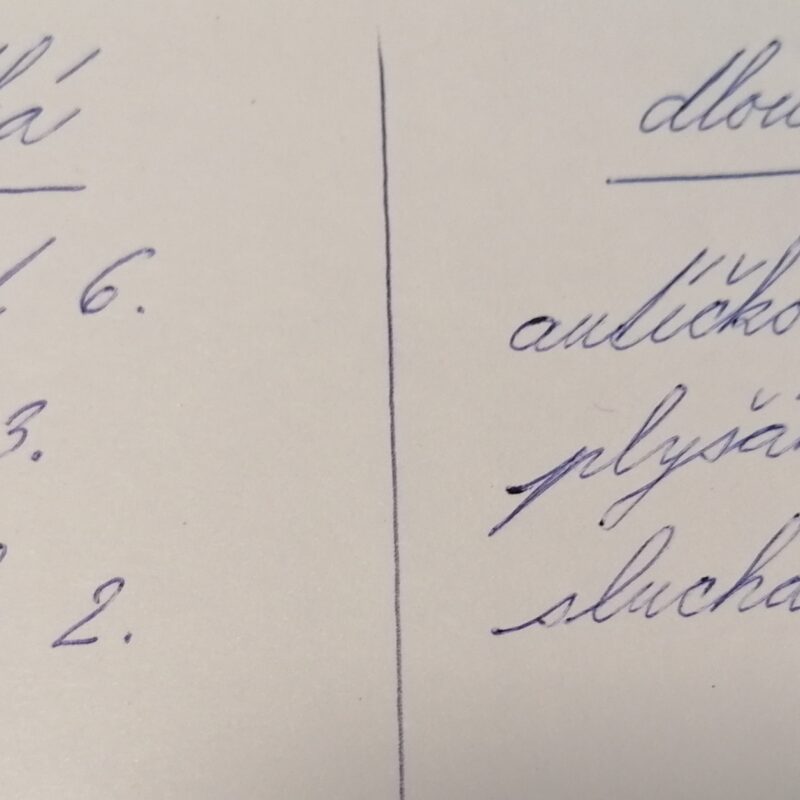 6.
3.
2.
dlou
autíčko
plyšá
sluchá